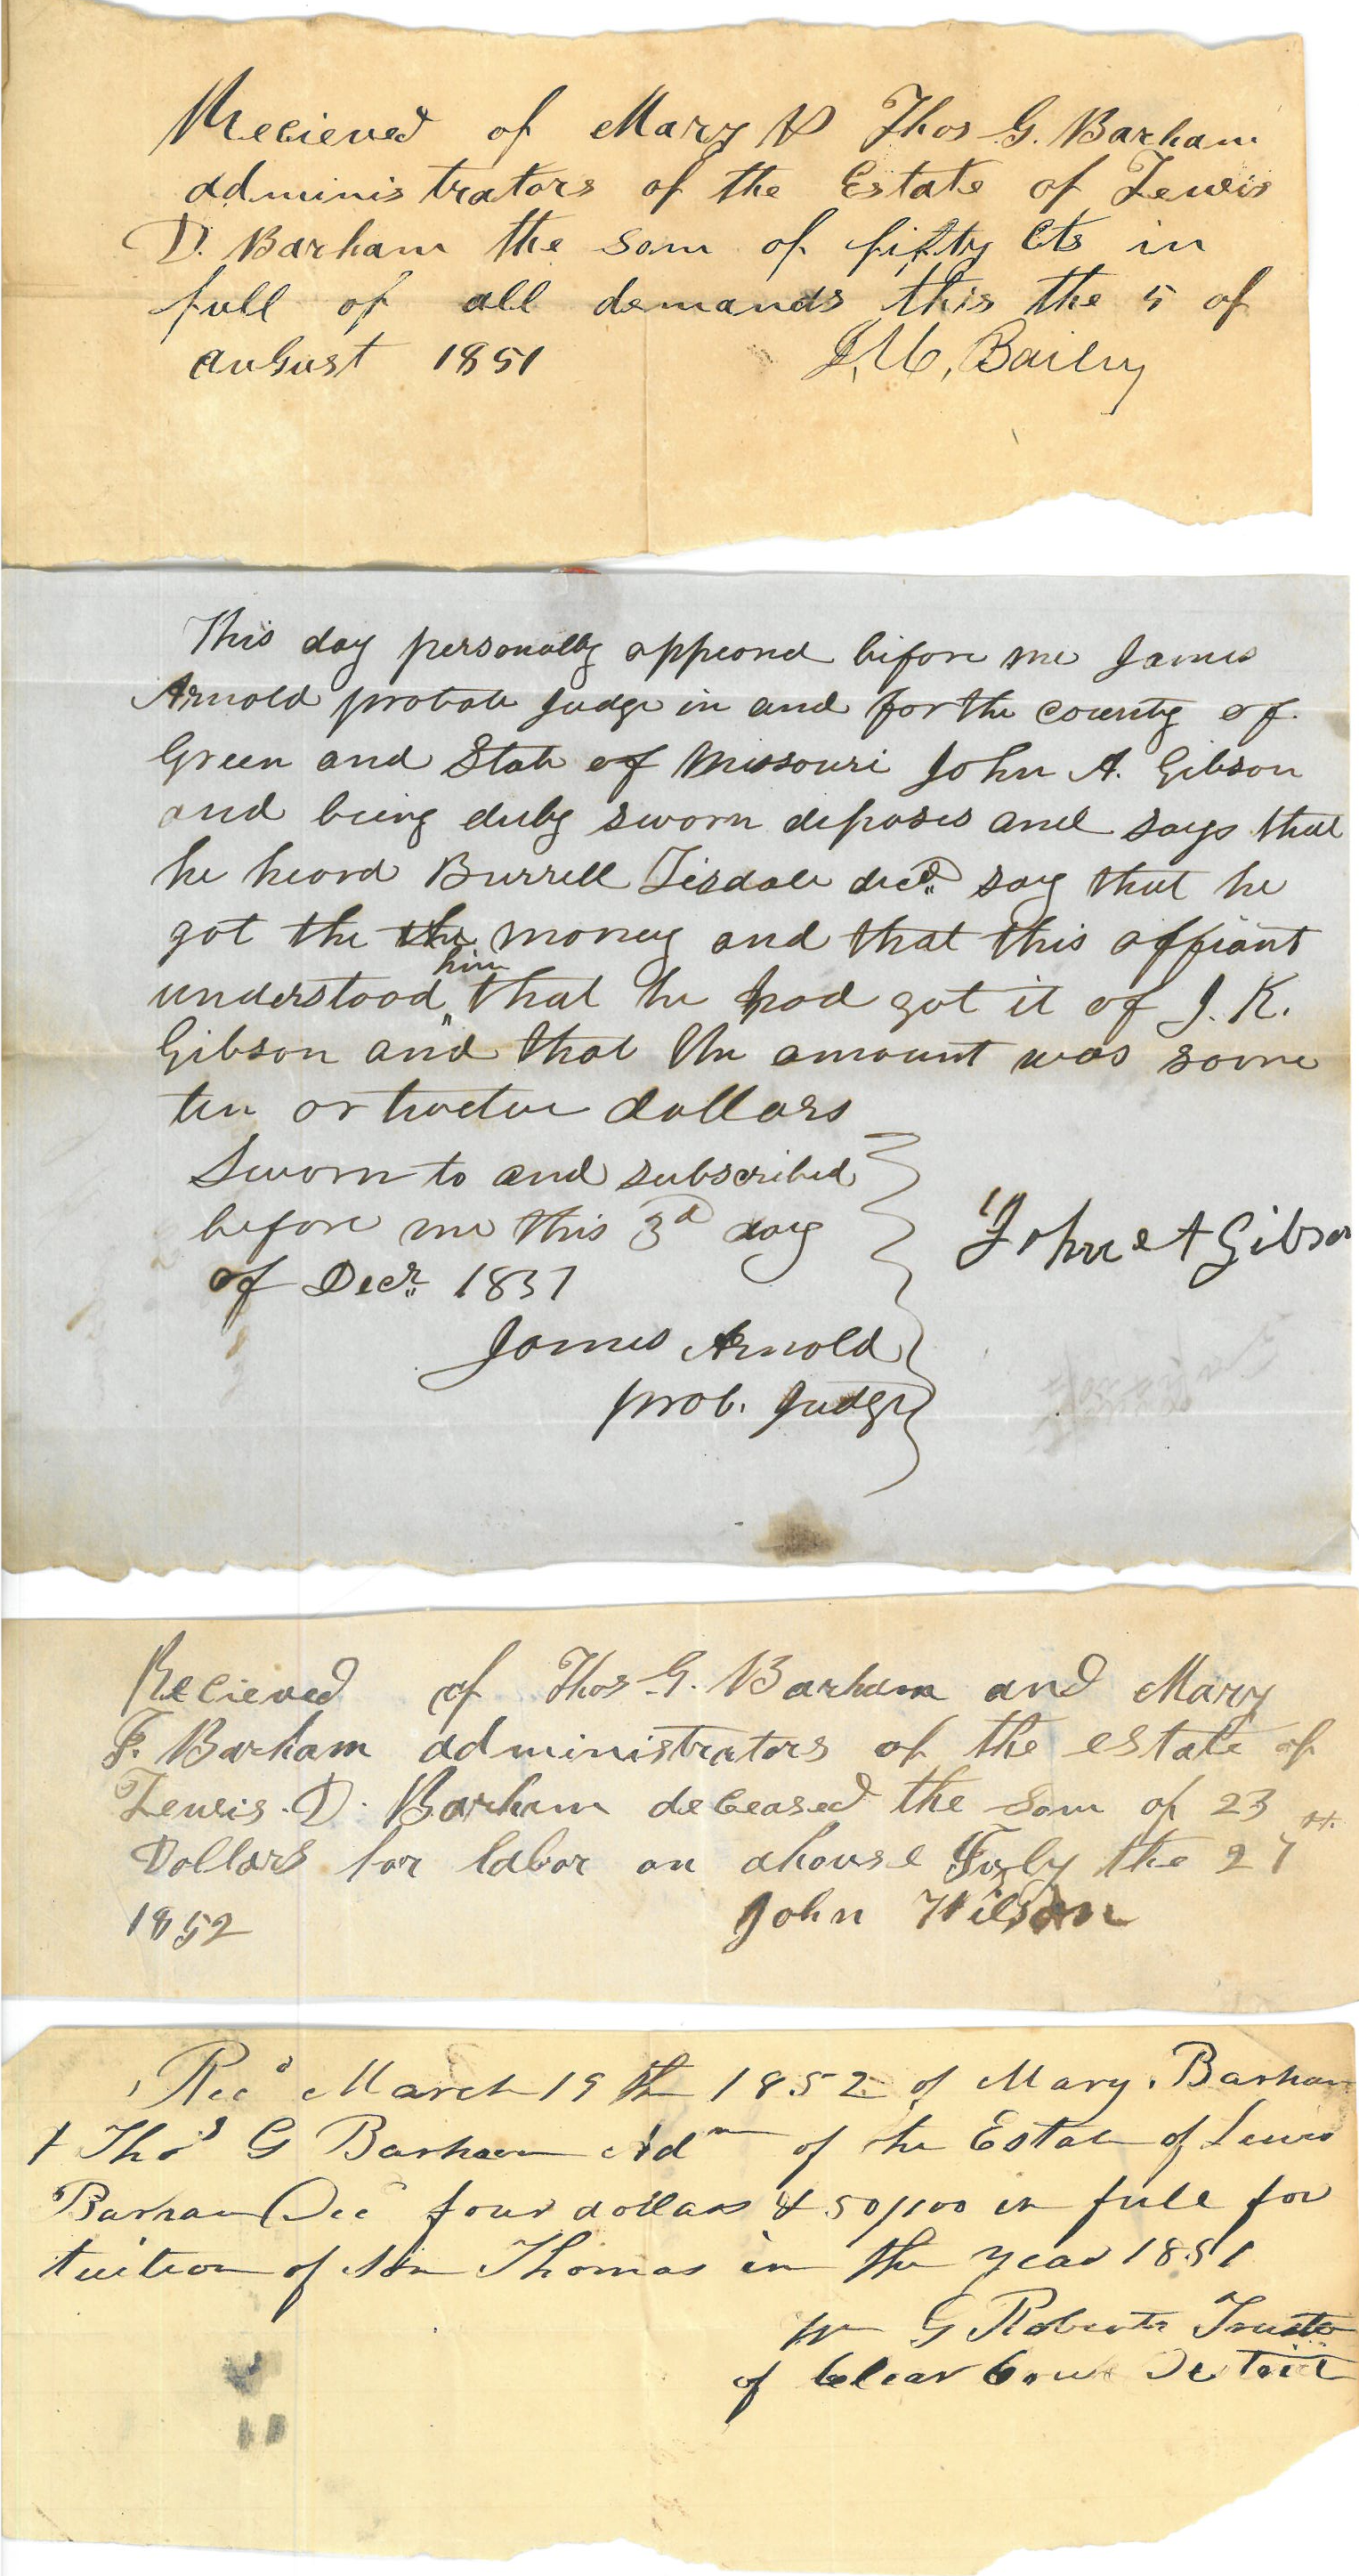 Recieved of Mary & Thos G. Barham
administrators of the Estate of Lewis
D. Barham the som of fifty Cts in
full of all demands this the 5 of
auGust 1851 J. M, Baily
This day personally appeared before me James
Arnold probate Judge in and for the county of
Green and State of Missouri John A. Gibson
and being duly sworn deposes and says that
he heard Burrell Tisdale decd. say that he
got the the money and that this affiant
understood him that he had got it of J. K.
Gibson and that the amount was some
ten or twelve dollars
Sworn to and subscribed
before me this 3d day
of Decr. 1851
John A Gibson
James Arnold
prob. Judge
Recieved of Thos G. Barham and Mary
F. Barham administrators of the estate of
Lewis. D. Barham deceased the som of 23
Dollars for labor on ahouse July the 27th
1852 John Wilson
Recd March 19th 1852 of Mary. Barham
& Thos G Barham Adm of the Estate of Lewis
Barham Decd four dollars & 50/100 in full for
tuition of son Thomas in the year 1851
Wm G Roberts Trustee
of Clear